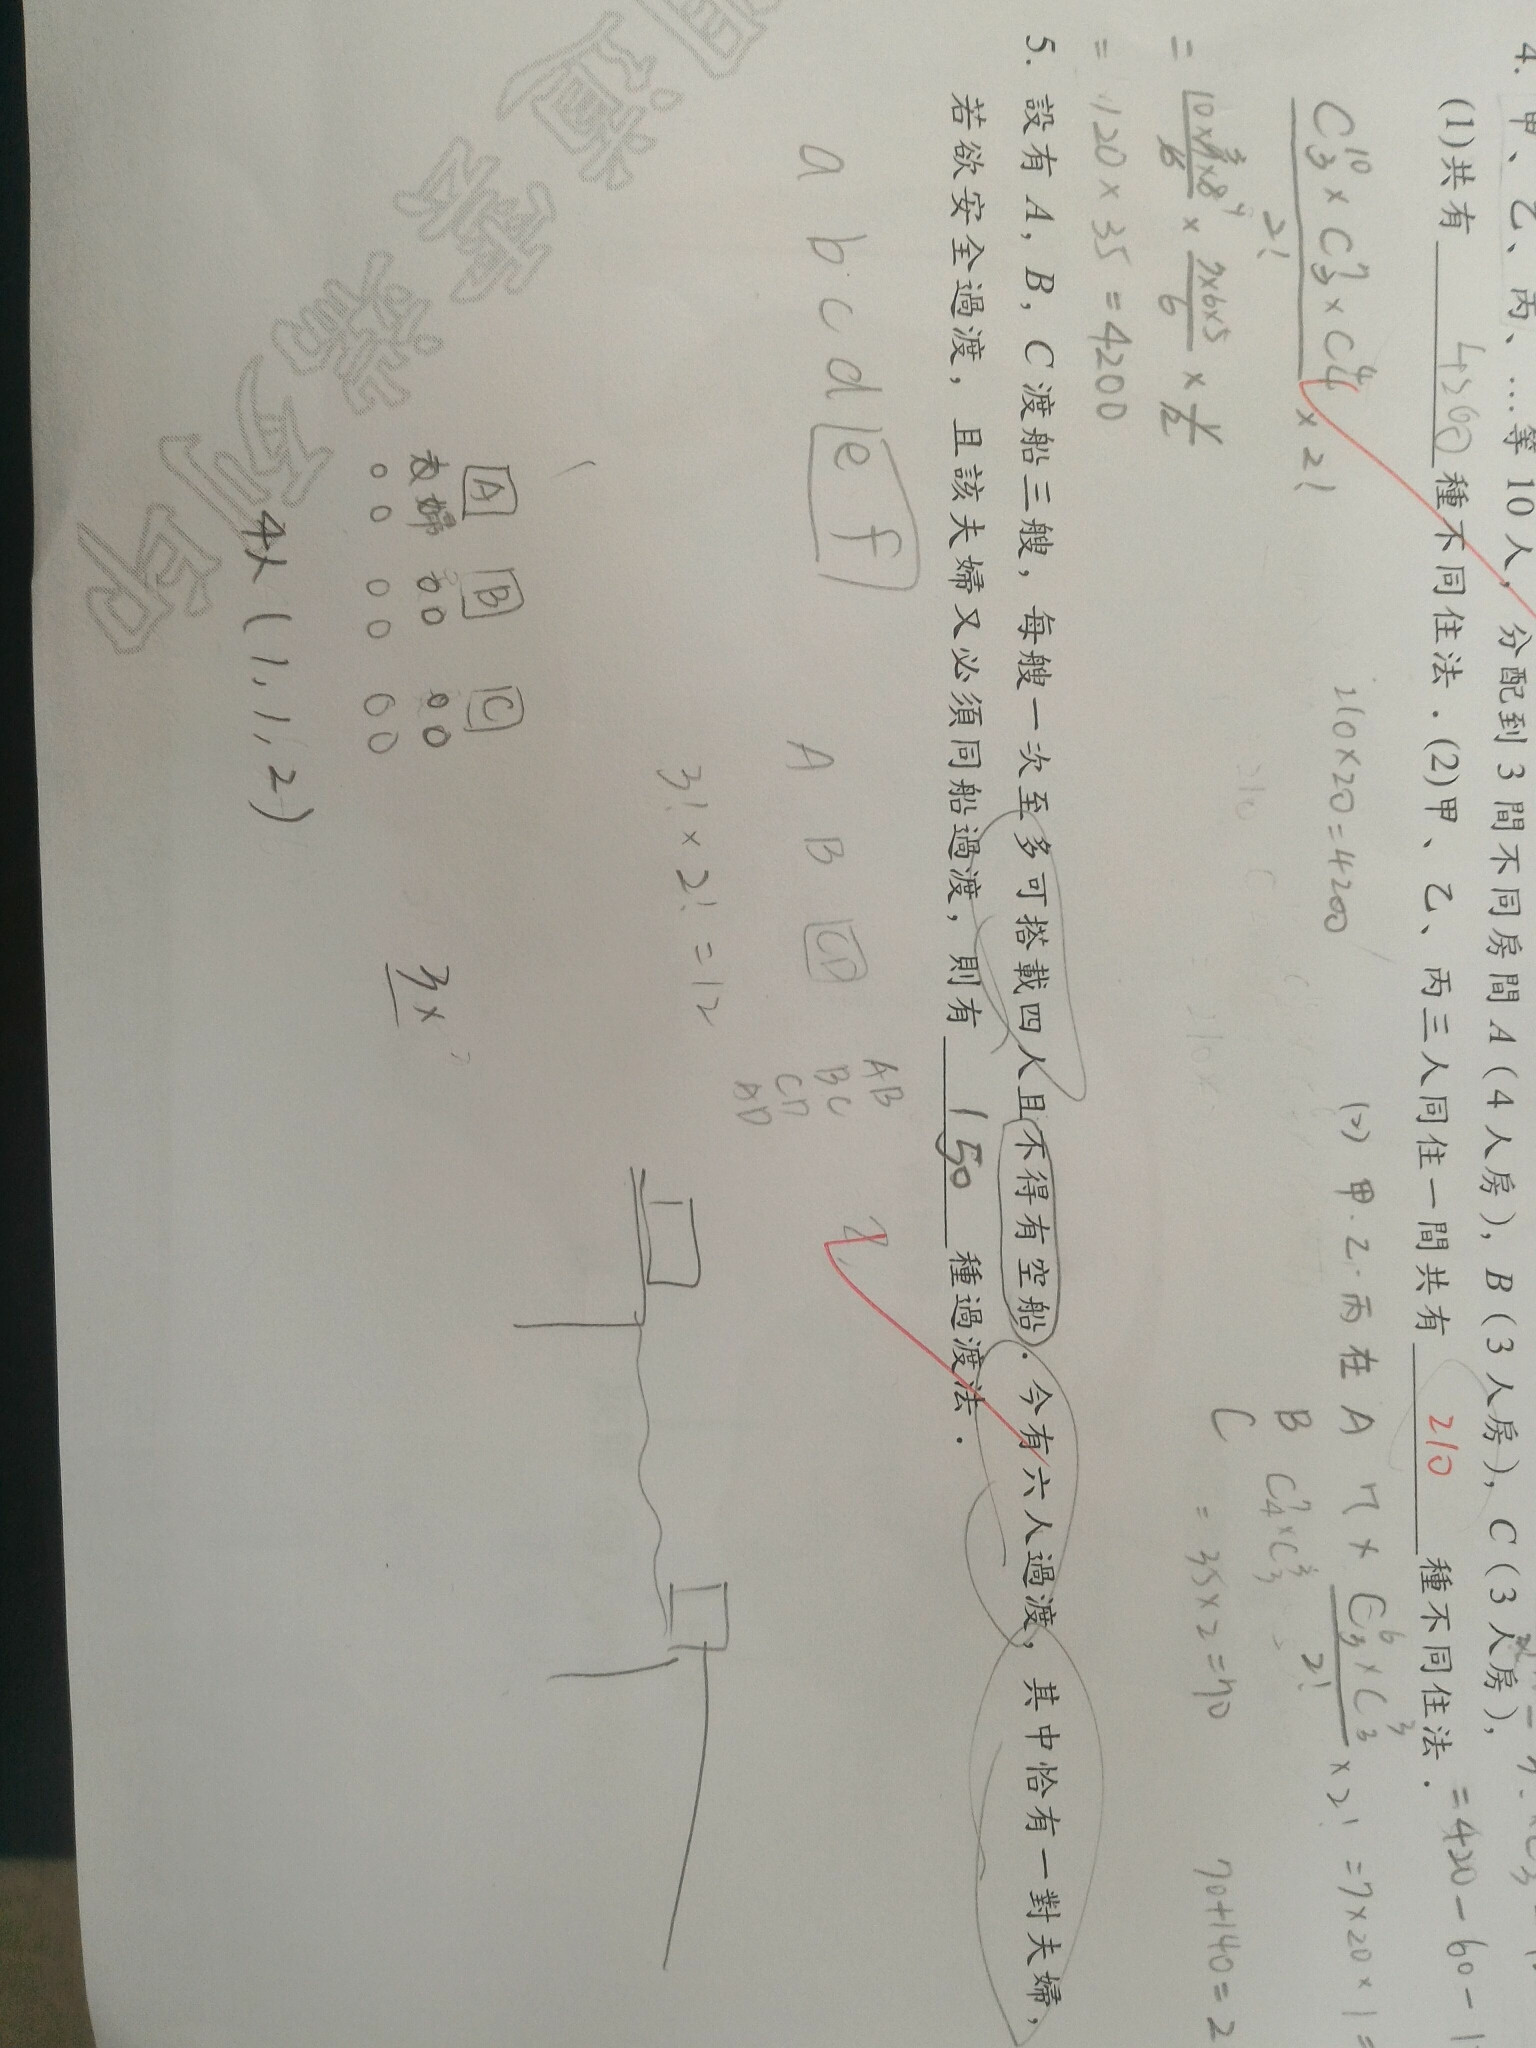 4. 甲、乙、丙、…等 10 人，分配到 3 間不同房間 A（4 人房），B（3 人房），C（3 人房），
(1)共有 4200 種不同住法．(2)甲、乙、丙三人同住一間共有 210 種不同住法．
= 420 - 60 -
C¹⁰₃ × C⁷₃ × C⁴₄ / 2! × 2!
210×20=4200
(2) 甲.乙.丙在 A 7 × C⁶₃ × C³₃ / 2! × 2! = 7×20×1 =
B C⁷₄ × C³₃
C = 35×2=70
70+140=2
= 10×9×8 / 6 × 7×6×5 / 6 ×
= 120×35=4200
5. 設有 A，B，C 渡船三艘，每艘一次至多可搭載四人且不得有空船．今有六人過渡，其中恰有一對夫婦，
若欲安全過渡，且該夫婦又必須同船過渡，則有 150 種過渡法．
a b c d e f
A B CD
AB
BC
CD
3! × 2! = 12
A B C
夫婦 0 0 0 0
0 0 0 0 0 0
3×
4人 (1, 1, 2)